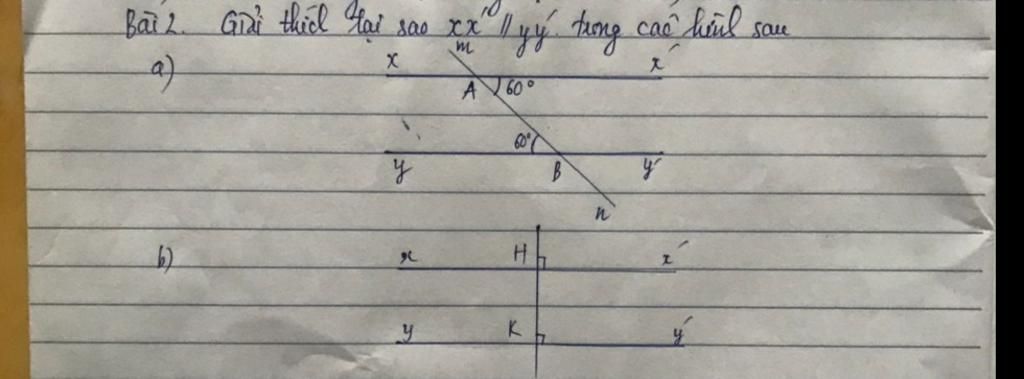 Bài 2. Giải thích tại sao xx' // yy' trong các hình sau
m
a) x x'
A 60°
60°
y B y'
n
b) x H x'
y K y'